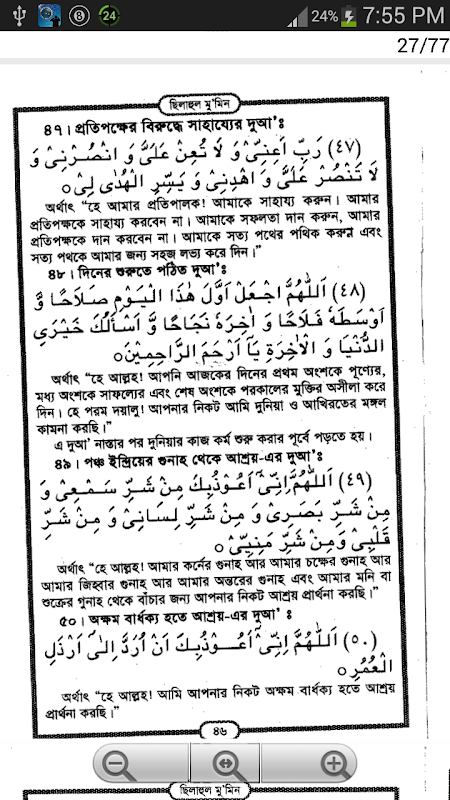 24% 7:55 PM
27/77
ছিলাহুল মু'মিন
৪৭। প্রতিপক্ষের বিরুদ্ধে সাহায্যের দুআ'ঃ
(٤٧) رَبِّ اَعِنِّىْ وَ لَا تُعِنْ عَلَىَّ وَ انْصُرْنِىْ وَ
لَا تَنْصُرْ عَلَىَّ وَ اهْدِنِىْ وَ يَسِّرِ الْهُدٰى لِىْ○
অর্থাৎ “হে আমার প্রতিপালক! আমাকে সাহায্য করুন। আমার
প্রতিপক্ষকে সাহায্য করবেন না। আমাকে সফলতা দান করুন, আমার
প্রতিপক্ষকে দান করবেন না। আমাকে সত্য পথের পথিক করুন এবং
সত্য পথকে আমার জন্য সহজ লভ্য করে দিন।”
৪৮। দিনের শুরুতে পঠিত দুআ'ঃ
(٤٨) اَللّٰهُمَّ اجْعَلْ اَوَّلَ هٰذَا الْيَوْمِ صَلَاحًا وَّ
اَوْسَطَهٗ فَلَاحًا وَ اٰخِرَهٗ نَجَاحًا وَّ اَسْأَلُكَ خَيْرَىِ
الدُّنْيَا وَ الْاٰخِرَةِ يَآ اَرْحَمَ الرَّاحِمِيْنَ○
অর্থাৎ “হে আল্লহ! আপনি আজকের দিনের প্রথম অংশকে পূণ্যের,
মধ্য অংশকে সাফল্যের এবং শেষ অংশকে পরকালের মুক্তির অসীলা করে
দিন। হে পরম দয়ালু! আপনার নিকট আমি দুনিয়া ও আখিরতের মঙ্গল
কামনা করছি।”
এ দুআ' নাস্তার পর দুনিয়ার কাজ কর্ম শুরু করার পূর্বে পড়তে হয়।
৪৯। পঞ্চ ইন্দ্রিয়ের গুনাহ থেকে আশ্রয়-এর দুআ'ঃ
(٤٩) اَللّٰهُمَّ اِنِّىْٓ اَعُوْذُبِكَ مِنْ شَرِّ سَمْعِىْ وَ
مِنْ شَرِّ بَصَرِىْ وَ مِنْ شَرِّ لِسَانِىْ وَ مِنْ شَرِّ
قَلْبِىْ وَمِنْ شَرِّ مَنِيِّىْ○
অর্থাৎ “হে আল্লহ! আমার কর্নের গুনাহ আর আমার চক্ষের গুনাহ আর
আমার জিহ্বার গুনাহ আর আমার অন্তরের গুনাহ এবং আমার মনি বা
শুক্রের গুনাহ থেকে বাঁচার জন্য আপনার নিকট আশ্রয় প্রার্থনা করছি।”
৫০। অক্ষম বার্ধক্য হতে আশ্রয়-এর দুআ' ঃ
(٥٠) اَللّٰهُمَّ اِنِّىْٓ اَعُوْذُبِكَ اَنْ اُرَدَّ اِلٰىٓ اَرْذَلِ
الْعُمُرِ○
অর্থাৎ “হে আল্লহ! আমি আপনার নিকট অক্ষম বার্ধক্য হতে আশ্রয়
প্রার্থনা করছি।”
৪৬
ছিলাহুল মু'মিন